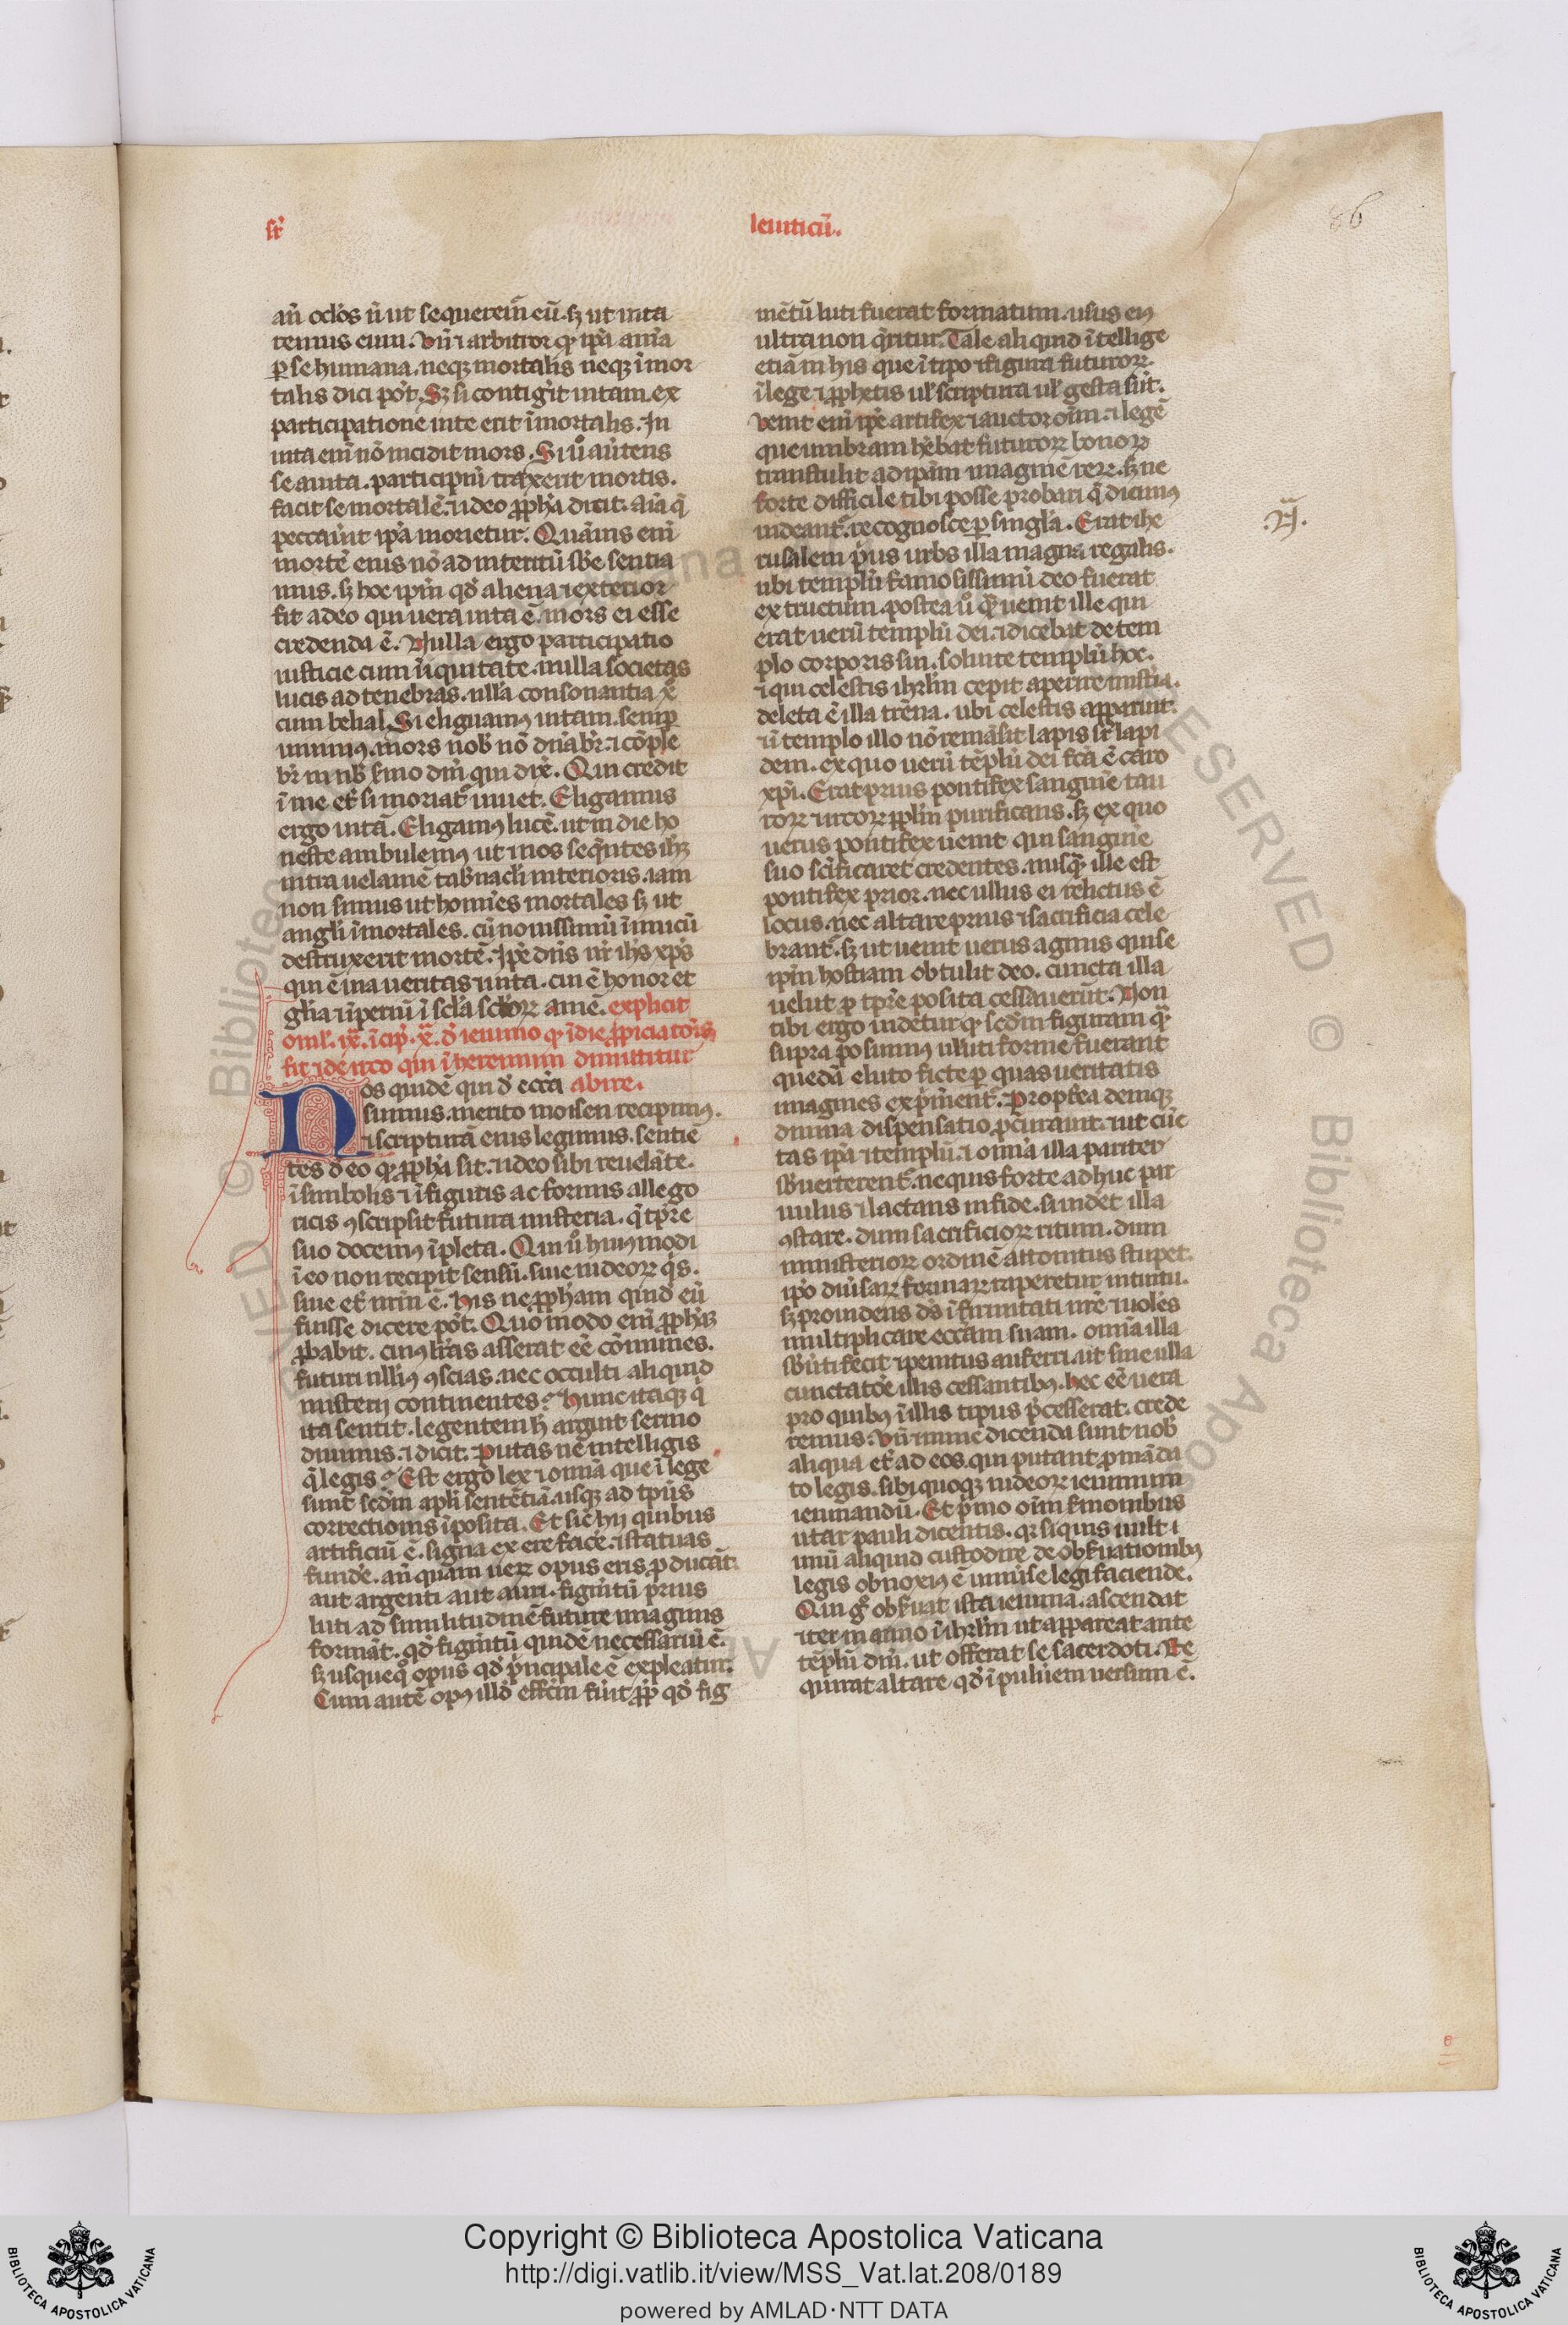 sr̄
leuiticū.
86
an̄ oc̄los n̄ ut sequerem̄ eū. sꝫ ut uita
remus eum. Vn̄ ⁊ arbitror qꝫ ip̄a anīa
ꝑ se humana. neqꝫ mortalis neqꝫ īmor
talis dici pōt. Sꝫ si contigīt uitam. ex
participatione uite erit īmortalis. In
uita eni nō incidit mors. Si uͦ auertens
se a uita. participiū traxerit mortis.
facit se mortalē. ⁊ ideo ꝓpħa dicit. aīa q̄
peccauīt ipa morietur. Quāuis eni
mortē eius nō ad interitū sb̄e sentia
mus. sꝫ hoc ipm̄ qđ aliena ⁊ exterior
fit a deo qui uera uita ē. mors ei esse
credenda ē. Nulla ergo participatio
iusticie cum īiquitate. nulla societas
lucis ad tenebras. nulla consonantia xͥ
cum belial. Si eligamꝰ uitam. semꝑ
uiuimꝰ. mors nob̄ nō dn̄abr̄. ⁊ cōple
br̄ in nob̄ ẜmo dn̄i qui dix̄. Qui credit
ī me et̄ si moriat᷑ uiuet. Eligamus
ergo uitā. Eligamꝰ lucē. ut in die ho
neste ambulemꝰ ut mos seq̄ntes ih̄ꝫ
intra uelamē tab̄nacl̄i interioris. iam
non simus ut homīes mortales sꝫ ut
angl̄i īmortales. cū nouissimū īimicū
destruxerit mortē. Ip̄e dn̄s nr̄ ih̄s xp̄s
qui ē uia ueritas ⁊ uita. cui ē honor et
glīa ⁊ īperiū ī scl̄a scl̄oꝝ amē. explicit
omł. ix̄. īcip̄. x̄. đ ieiunio qꝫ ī die ꝓpiciatōis
fit ⁊ de irco qui ī heremum dimittitur
Nos quidē qui đ ecc̄a abire.
sumus. merito moisen recipimꝰ.
⁊ scripturā eius legimus. sentiē
tes đ eo qꝫ ꝓpħa sit. ⁊ ideo sibi reuelāte.
ī simbolis ⁊ ī figuris ac formis allego
ricis ꝯscripsit futura misteria. q̄ tp̄re
suo docemꝰ īpleta. Qui uͦ huiꝰmodi
ī eo non recipit sensū. siue iudeoꝝ q̄s.
siue et̄ nr̄m ē. His ne ꝓpħam quid eū
fuisse dicere pōt. Quomodo eni ꝓpħꝫ
ꝓbabit. cuiꝰ lr̄as asserat eē cōmunes.
futuri nlliꝰ ꝯscias. nec occulti aliquid
misterij continentes? Hunc itaqꝫ q̄
ita sentit. legentem h̄ arguit sermo
diuinus. ⁊ dicit. Putas ne intelligis
q̄ legis? Est ergo lex ⁊ omīa que ī lege
sunt scdm̄ apl̄i sentētiā. usqꝫ ad tp̄us
correctionis īposita. Et sic̄ hij quibus
artificiū ē. signa ex ere facē. ⁊ statuas
fundē. an̄ quam ueꝝ opus eris ꝓducāt.
aut argenti aut auri. figmtū prius
luti ad similitudinē future imaginis
formāt. qđ figmtū quidē necessariū ē.
sꝫ usquequͦ opus qđ pͥncipale ē expleatur.
Cum autē opꝰ illđ effc̄m fuīt ꝓp̄ qđ fig
mētū luti fuerat formatum. usus eiꝰ
ultra non q̄ritur. Tale aliquid ītellige
etiā in his que ī tipo ⁊ figura futuroꝝ.
ī lege ⁊ ꝓphetis uł scriptura uł gesta sūt.
Venit eni ip̄e artifex ⁊ auctor oīm. ⁊ legē
que umbram hēbat futuroꝝ bonoꝝ
transtulit ad ipām imaginē reꝝ. sꝫ ne
forte difficile tibi posse probari q̄ dicimꝰ
uideant᷑. recognosce ꝑ singl̄a. Erat ihe
rusalem pͥus urbs illa magna regalis.
ubi templū famosissimū deo fuerat
extructum. postea uͦ qꝫ uenit ille qui
erat uerū templū dei. ⁊ dicebat de tem
plo corporis sui. soluite templū hoc.
⁊ qui celestis ihr̄lm̄ cepit aperire misᵗia.
deleta ē illa trēna. ubi celestis apparuit.
⁊ ī templo illo nō remāsit lapis sr̄ lapi
dem. ex quo uerū tēplū dei fc̄a ē caro
xp̄i. Erat prius pontifex sanguīe tau
roꝝ ⁊ ircoꝝ ꝓplm̄ purificans. sꝫ ex quo
uerus pontifex uenit qui sanguīe
suo sc̄ificaret credentes. nusqꝫ ille est
pontifex prior. nec ullus ei relictus ē
locus. nec altare prius ⁊ sacrificia cele
brant᷑. sꝫ ut uenit uerus agnus qui se
ipm̄ hostiam obtulit deo. cuncta illa
uelut ꝓ tp̄re posita cessauerūt. Non
tibi ergo uidetur qꝫ scdm̄ figuram qꝫ
supra posuimꝰ ueluti forme fuerant
quedā e luto ficte ꝑ quas ueritatis
imagines expͥment᷑. Propᵗea deniqꝫ
diuina dispensatio ꝓcurauit. ⁊ ut ciuē
tas ip̄a ⁊ templū. ⁊ omīa illa pariter
sb̄uerterent᷑. ne quis forte adhuc par
uulus ⁊ lactans in fide. si uidēt illa
ꝯstare. dum sacrificioꝝ ritum. dum
ministerioꝝ ordinē attonitus stupet.
ip̄o diūsaꝝ formaꝝ raperetur intuitu.
sꝫ prouidens đs īfirmitati nr̄e ⁊ uolēs
multiplicare ecc̄am suam. omīa illa
sb̄uti fecit ⁊ penitus auferri. ut sine ulla
cunctatōe illis cessantibꝰ. hec eē uera
pro quibꝰ ī illis tipus pͥcesserat. crede
remus. Vn̄ nunc dicenda sunt nob̄
aliqua et̄ ad eos. qui putant ꝓ māda
to legis. sibi quoqꝫ iudeoꝝ ieiunium
ieiunandū. Et pͥmo oīm ẜmonibus
utar pauli dicentis. qꝛ si quis uult ł
unū aliquid custodire de obẜuationibꝰ
legis obnoxiꝰ ē uniūse legi faciende.
Qui gͦ obẜuat ista ieiunia. ascendat
⁊ ter in anno ī ihr̄lm̄ ut appareat ante
tēplū dn̄i. ut offerat se sacerdoti. Re
quirat altare qđ ī puluerem uersum ē.
Copyright © Biblioteca Apostolica Vaticana
http://digi.vatlib.it/view/MSS_Vat.lat.208/0189
powered by AMLAD·NTT DATA